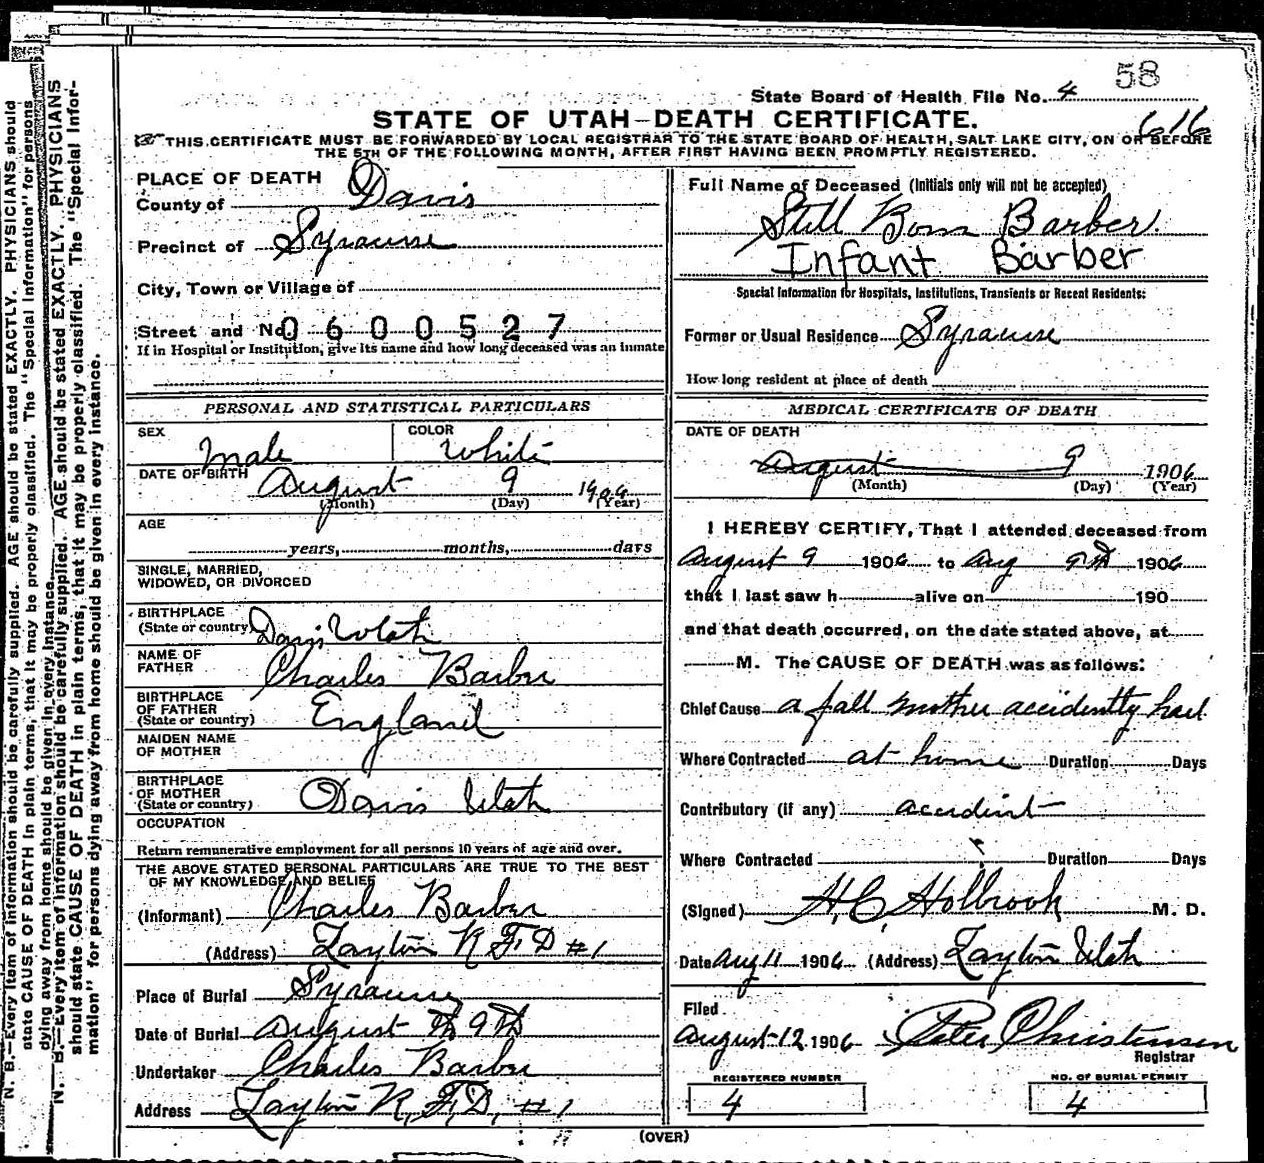 58
State Board of Health File No. 4
STATE OF UTAH—DEATH CERTIFICATE.
616
THIS CERTIFICATE MUST BE FORWARDED BY LOCAL REGISTRAR TO THE STATE BOARD OF HEALTH, SALT LAKE CITY, ON OR BEFORE
THE 5TH OF THE FOLLOWING MONTH, AFTER FIRST HAVING BEEN PROMPTLY REGISTERED.
PLACE OF DEATH
County of Davis
Precinct of Syracuse
City, Town or Village of
Street and No. 0600527
If in Hospital or Institution, give its name and how long deceased was an inmate
Full Name of Deceased (Initials only will not be accepted)
Still Born Barber.
Infant Barber
Special Information for Hospitals, Institutions, Transients or Recent Residents:
Former or Usual Residence Syracuse
How long resident at place of death
PERSONAL AND STATISTICAL PARTICULARS
SEX Male COLOR White
DATE OF BIRTH August 9 1906
(Month) (Day) (Year)
AGE
years, months, days
SINGLE, MARRIED,
WIDOWED, OR DIVORCED
BIRTHPLACE
(State or country) Davis Utah
NAME OF
FATHER Charles Barber
BIRTHPLACE
OF FATHER
(State or country) England
MAIDEN NAME
OF MOTHER
BIRTHPLACE
OF MOTHER
(State or country) Davis Utah
OCCUPATION
Return remunerative employment for all persons 10 years of age and over.
THE ABOVE STATED PERSONAL PARTICULARS ARE TRUE TO THE BEST
OF MY KNOWLEDGE AND BELIEF
(Informant) Charles Barber
(Address) Layton R F D #1
Place of Burial Syracuse
Date of Burial August 9th
Undertaker Charles Barber
Address Layton R, F, D, #1
MEDICAL CERTIFICATE OF DEATH
DATE OF DEATH
August 9 1906
(Month) (Day) (Year)
I HEREBY CERTIFY, That I attended deceased from
August 9 1906 to Aug 9th 1906
that I last saw h alive on 190
and that death occurred, on the date stated above, at
M. The CAUSE OF DEATH was as follows:
Chief Cause a fall mother accidently had
Where Contracted at home Duration Days
Contributory (if any) accident
Where Contracted Duration Days
(Signed) H.C. Holbrook M. D.
Date Aug 11 1906 (Address) Layton Utah
Filed
August 12 1906 Peter Christensen
Registrar
REGISTERED NUMBER
4
NO. OF BURIAL PERMIT
4
(OVER)
N. B.—Every item of information should be carefully supplied. AGE should be stated EXACTLY. PHYSICIANS should
state CAUSE OF DEATH in plain terms, that it may be properly classified. The "Special Information" for persons
dying away from home should be given in every instance.
N. B.—Every item of information should be carefully supplied. AGE should be stated EXACTLY. PHYSICIANS
should state CAUSE OF DEATH in plain terms, that it may be properly classified. The "Special Infor-
mation" for persons dying away from home should be given in every instance.